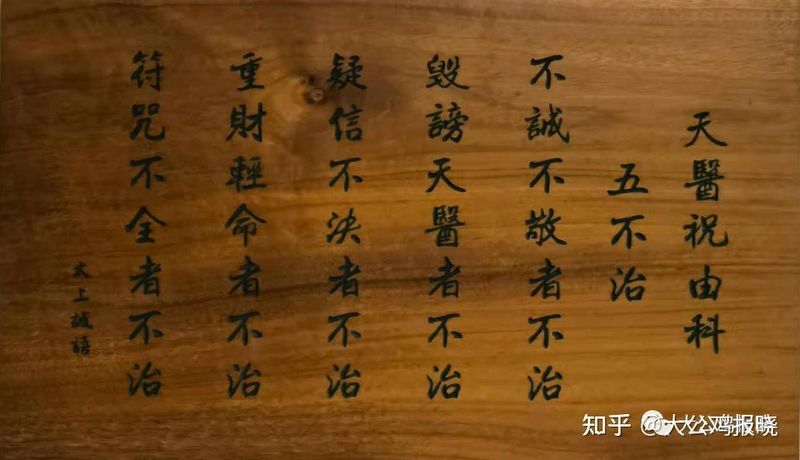 天醫祝由科
五不治
不誠不敬者不治
毀謗天醫者不治
疑信不決者不治
重財輕命者不治
符咒不全者不治
太上誠語
知乎 @大公鸡报晓